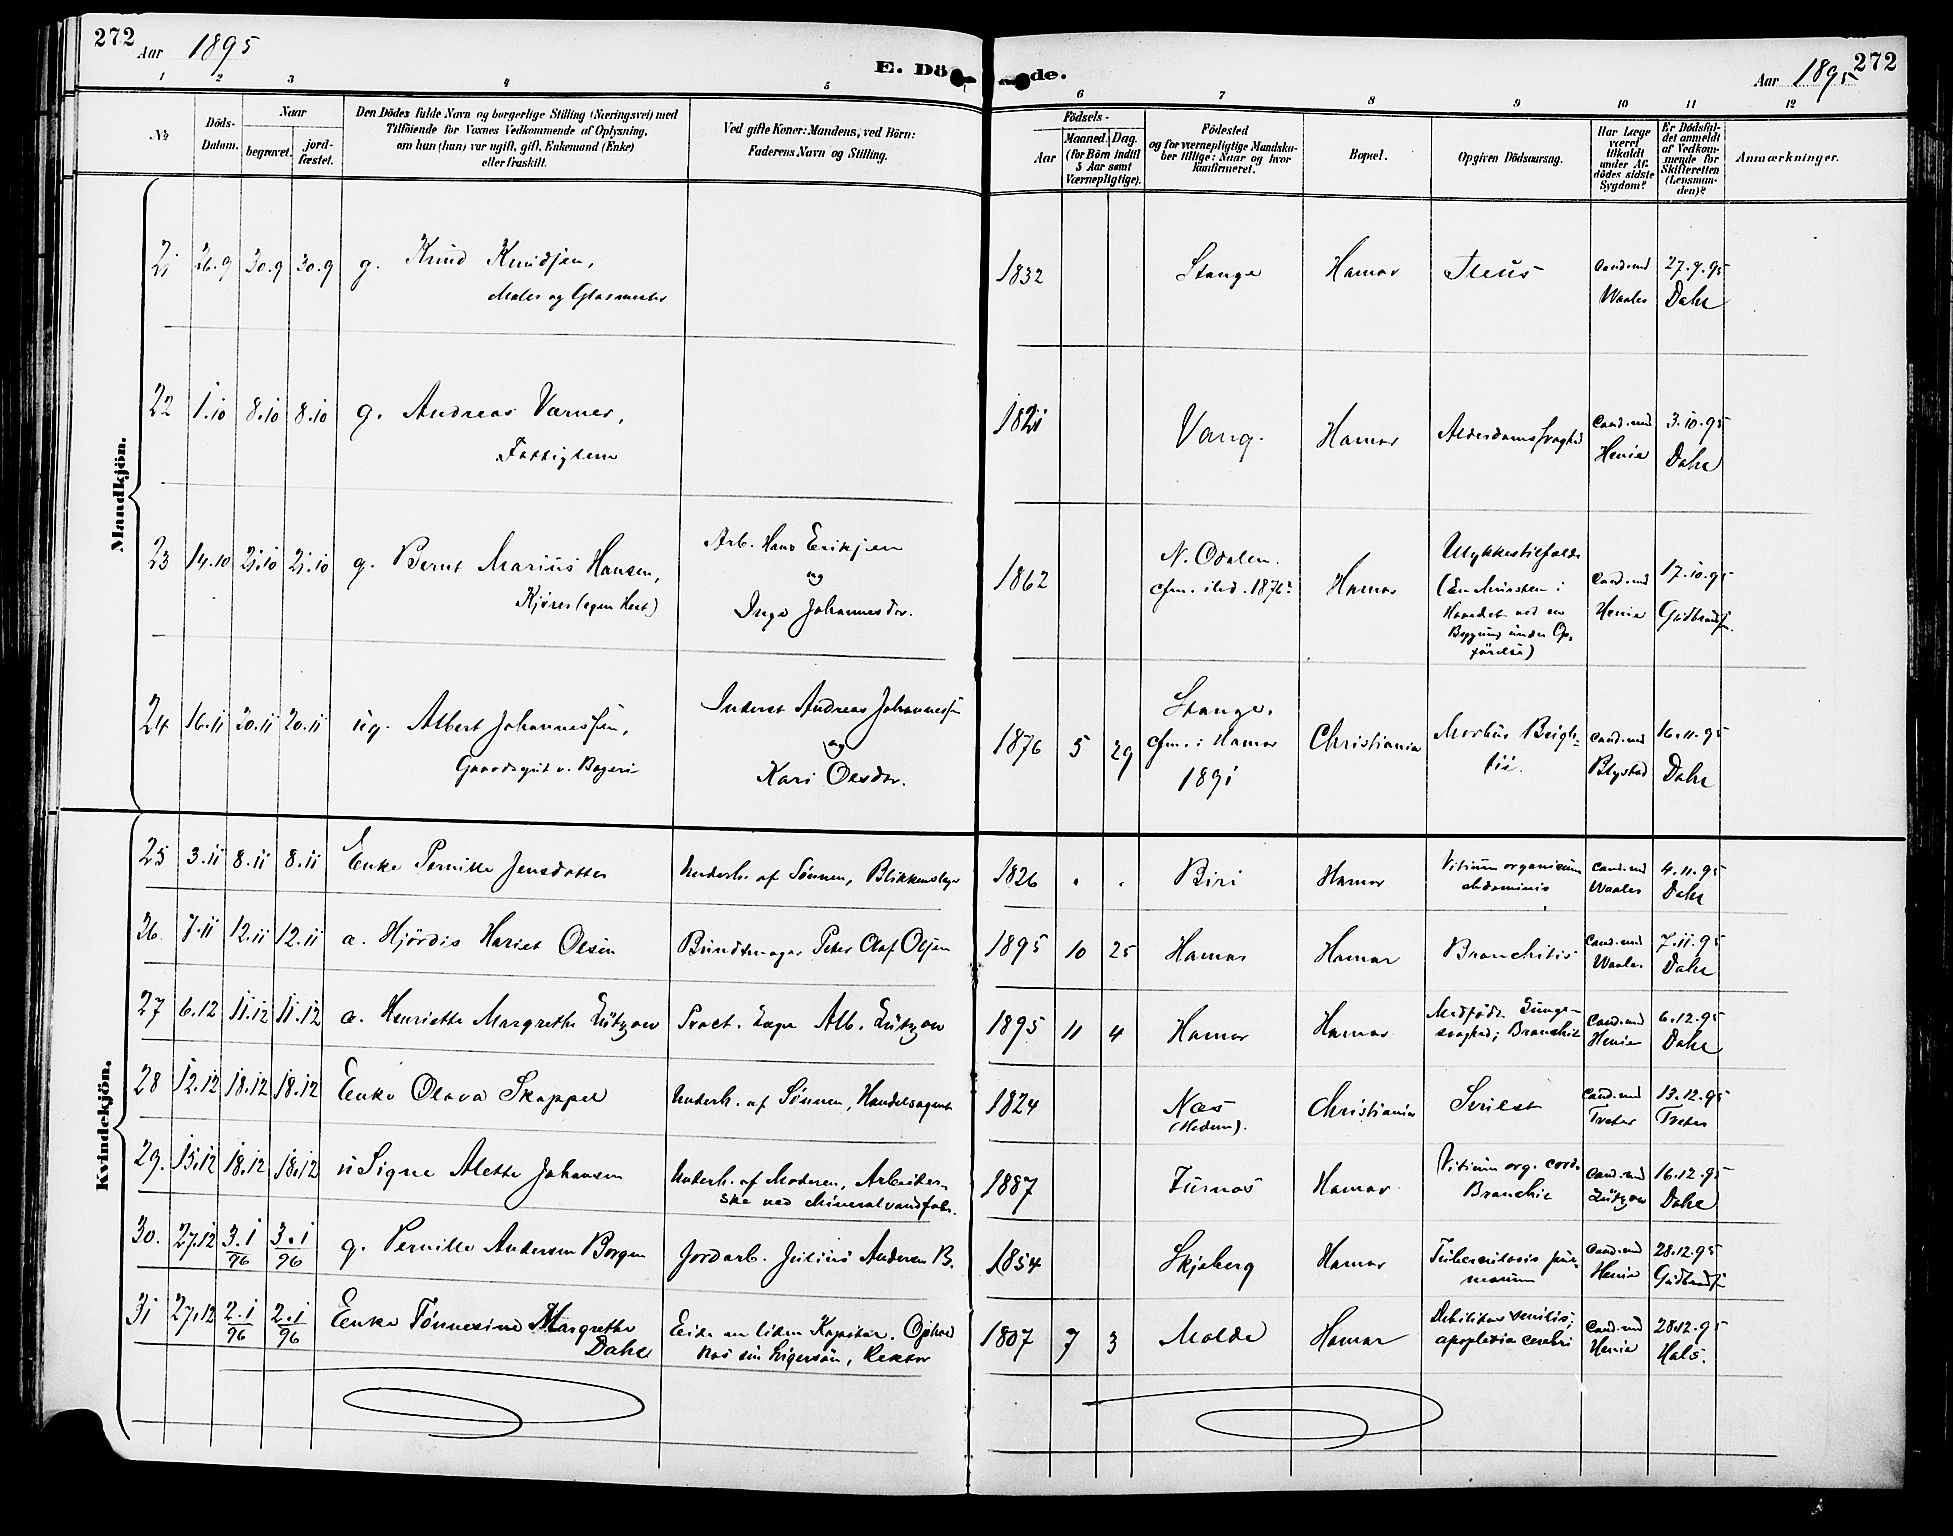 272 Aar 1895
E. Dö
de.
Aar 1895 272
1 2 3 4 5 6 7 8 9 10 11 12
№
Döds-
Datum.
Naar
begravet.
jord-
fæstet.
Den Dödes fulde Navn og borgerlige Stilling (Næringsvei) med
Tilföiende for Voxnes Vedkommende af Oplysning,
om han (hun) var ugift, gift, Enkemand (Enke)
eller fraskilt.
Ved gifte Koner: Mandens, ved Börn:
Faderens Navn og Stilling.
Födsels-
Aar
Maaned. Dag.
(for Börn indtil
5 Aar samt
Værnepligtige).
Födested
og for værnepligtige Mandska-
ber tillige: Naar og hvor
konfirmeret.
Bopæl.
Opgiven Dödsaarsag.
Har Læge
været
tilkaldt
under Af-
dödes sidste
Sygdom?
Er Dödsfal-
det anmeldt
af Vedkom-
mende for
Skifteretten
(Lensman-
den)?
Anmærkninger.
Mandkjön.
21 26.9 30.9 30.9 g. Knud Knudsen, 1832 Stange Hamar Ileus Cand.med 27.9.95
Maler og Glasmester Waaler Dahl
22 1.10 8.10 8.10 g. AndreasVærner, 1821 Vang. Hamar Alderdomssvaghed Cand.med 3.10.95
Fattiglem Henie Dahl
23 14.10 21.10 21.10 g. Bernt Marius Hansen, Arb. Hans Eriksen 1862 N. Odalen. Hamar Ulykkestilfælde Cand.med 17.10.95
Kjører (egen Hest) og Inga Johannesdr. cfm. ibid. 1876 (En Mursten i Henie Gudbrands.
Hovedet ved en
Bygning under Op-
førelse)
24 16.11 20.11 20.11 ug. Albert Johannessen, Inderst Andreas Johannessen 1876 5 29 Stange. Christiania Morbus Brigh- Cand.med 16.11.95
Gaardsgut v. Bageri og Kari Olsdr. cfm. i Hamar tii. Blystad Dahl
1891
Kvindekjön.
25 3.11 8.11 8.11 Enke Pernille Jensdatter Underh. af Sønnen, Blikkenslager 1826 . . Biri Hamar Vitium organicum Cand.med 4.11.95
abdominis Waaler Dahl
26. 7.11 12.11 12.11 a. Hjördis Hariet Olsen Bundtmager Peter Olaf Olsen 1895 10 25 Hamar Hamar Bronchitis Cand.med 7.11.95
Waaler Dahl
27 6.12 11.12 11.12 a. Henriette Margrethe Lützow Pract. Læge Alb. Lützow 1895 11 4 Hamar Hamar Medfødt Lunge- Cand.med 6.12.95
svaghed; Bronchit Henie Dahl
28 12.12 18.12 18.12 Enke Olava Skappel Underh. af Sønnen, Handelsagent 1824 Næs Christiania Svulst Cand.med 13.12.95
(Hedem). Treter Treter
29. 15.12 18.12 18.12 u Signe Alette Johansen Underh. af Moderen, Arbeider- 1887 Furnæs Hamar Vitium org. cord. Cand.med 16.12.95
ske ved Mineralvandfabr. Bronchit Lützow Dahl
30. 27.12 3.1/96 3.1/96 g. Pernille Andersen Borgen Jordarb. Julius Andersen B. 1854 Skjeberg Hamar Tuberculosis pul- Cand.med 28.12.95
monum Henie Gudbrands.
31 27.12 2.1/96 2.1/96 Enke Tønnesine Margrethe Eide en liden Kapital. Ophold 1807 7 3 Molde Hamar Debilitas senilis; Cand.med 28.12.95
Dahl hos sin Svigersøn, Rektor apoplexia cerebri Henie Hals.